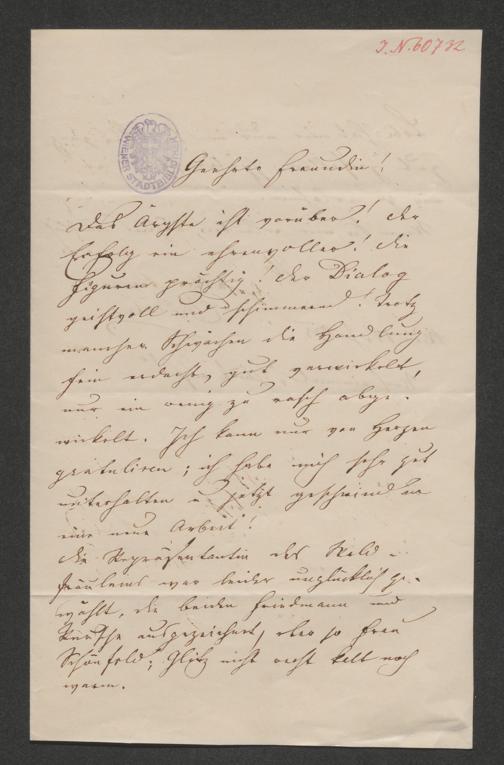 I. N. 60732
WIENER STADTBIBLIOTHEK
Geehrte Freundin!
Das Ärgste ist vorüber! der
Erfolg ein ehrenvoller! die
Figuren prächtig! der Dialog
geistvoll und schimmernd! Trotz
mancher Schwächen die Handlung
fein erdacht, gut verwickelt,
nur ein wenig zu rasch abge-
wickelt. Ich kann nur von Herzen
gratuliren; ich habe mich sehr gut
unterhalten u jetzt geschwind an
eine neue Arbeit!
die Repräsentantin des
fräuleins war leider unglücklich ge-
wählt, die beiden Friedmann und
ausgezeichnet, eben so Frau
Schönfeld; nicht recht kalt noch
warm.